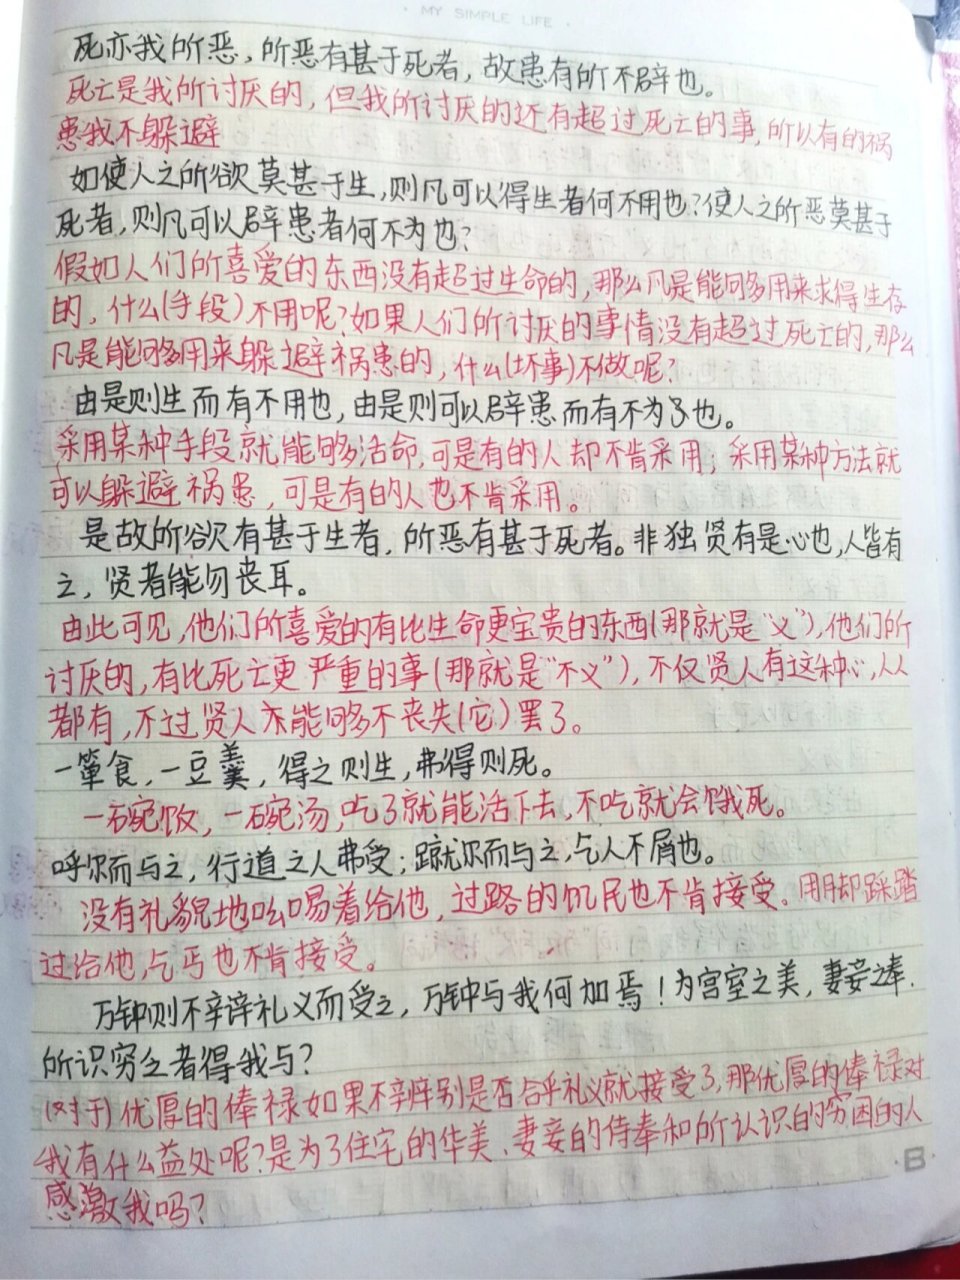 · MY SIMPLE LIFE ·
死亦我所恶，所恶有甚于死者，故患有所不辟也。
死亡是我所讨厌的，但我所讨厌的还有超过死亡的事，所以有的祸
患我不躲避
如使人之所欲莫甚于生，则凡可以得生者何不用也？使人之所恶莫甚于
死者，则凡可以辟患者何不为也？
假如人们所喜爱的东西没有超过生命的，那么凡是能够多用来求得生存
的，什么(手段)不用呢？如果人们所讨厌的事情没有超过死亡的，那么
凡是能够用来躲避祸患的，什么(坏事)不做呢？
由是则生而有不用也，由是则可以辟患而有不为了也。
采用某种手段就能够活命，可是有的人却不肯采用；采用某种方法就
可以躲避祸患，可是有的人也不肯采用。
是故所欲有甚于生者，所恶有甚于死者。非独贤有是心也，人皆有
之，贤者能勿丧耳。
由此可见，他们所喜爱的有比生命更宝贵的东西(那就是“义”)，他们所
讨厌的，有比死亡更严重的事(那就是“不义”)，不仅贤人有这种心，人人
都有，不过贤人亦能够不丧失(它)罢了。
一箪食，一豆羹，得之则生，弗得则死。
一碗饭，一碗汤，吃了就能活下去，不吃就会饿死。
呼尔而与之，行道之人弗受；蹴尔而与之，乞人不屑也。
没有礼貌地吆喝着给他，过路的饥民也不肯接受。用脚踩踏
过给他，乞丐也不肯接受。
万钟则不辛辩礼义而受之，万钟与我何加焉！为宫室之美，妻妾之奉，
所识穷乏者得我与？
(对于)优厚的俸禄如果不辨别是否合乎礼义就接受了，那优厚的俸禄对
我有什么益处呢？是为了住宅的华美、妻妾的侍奉和所认识的穷困的人
感激我吗？
·B·